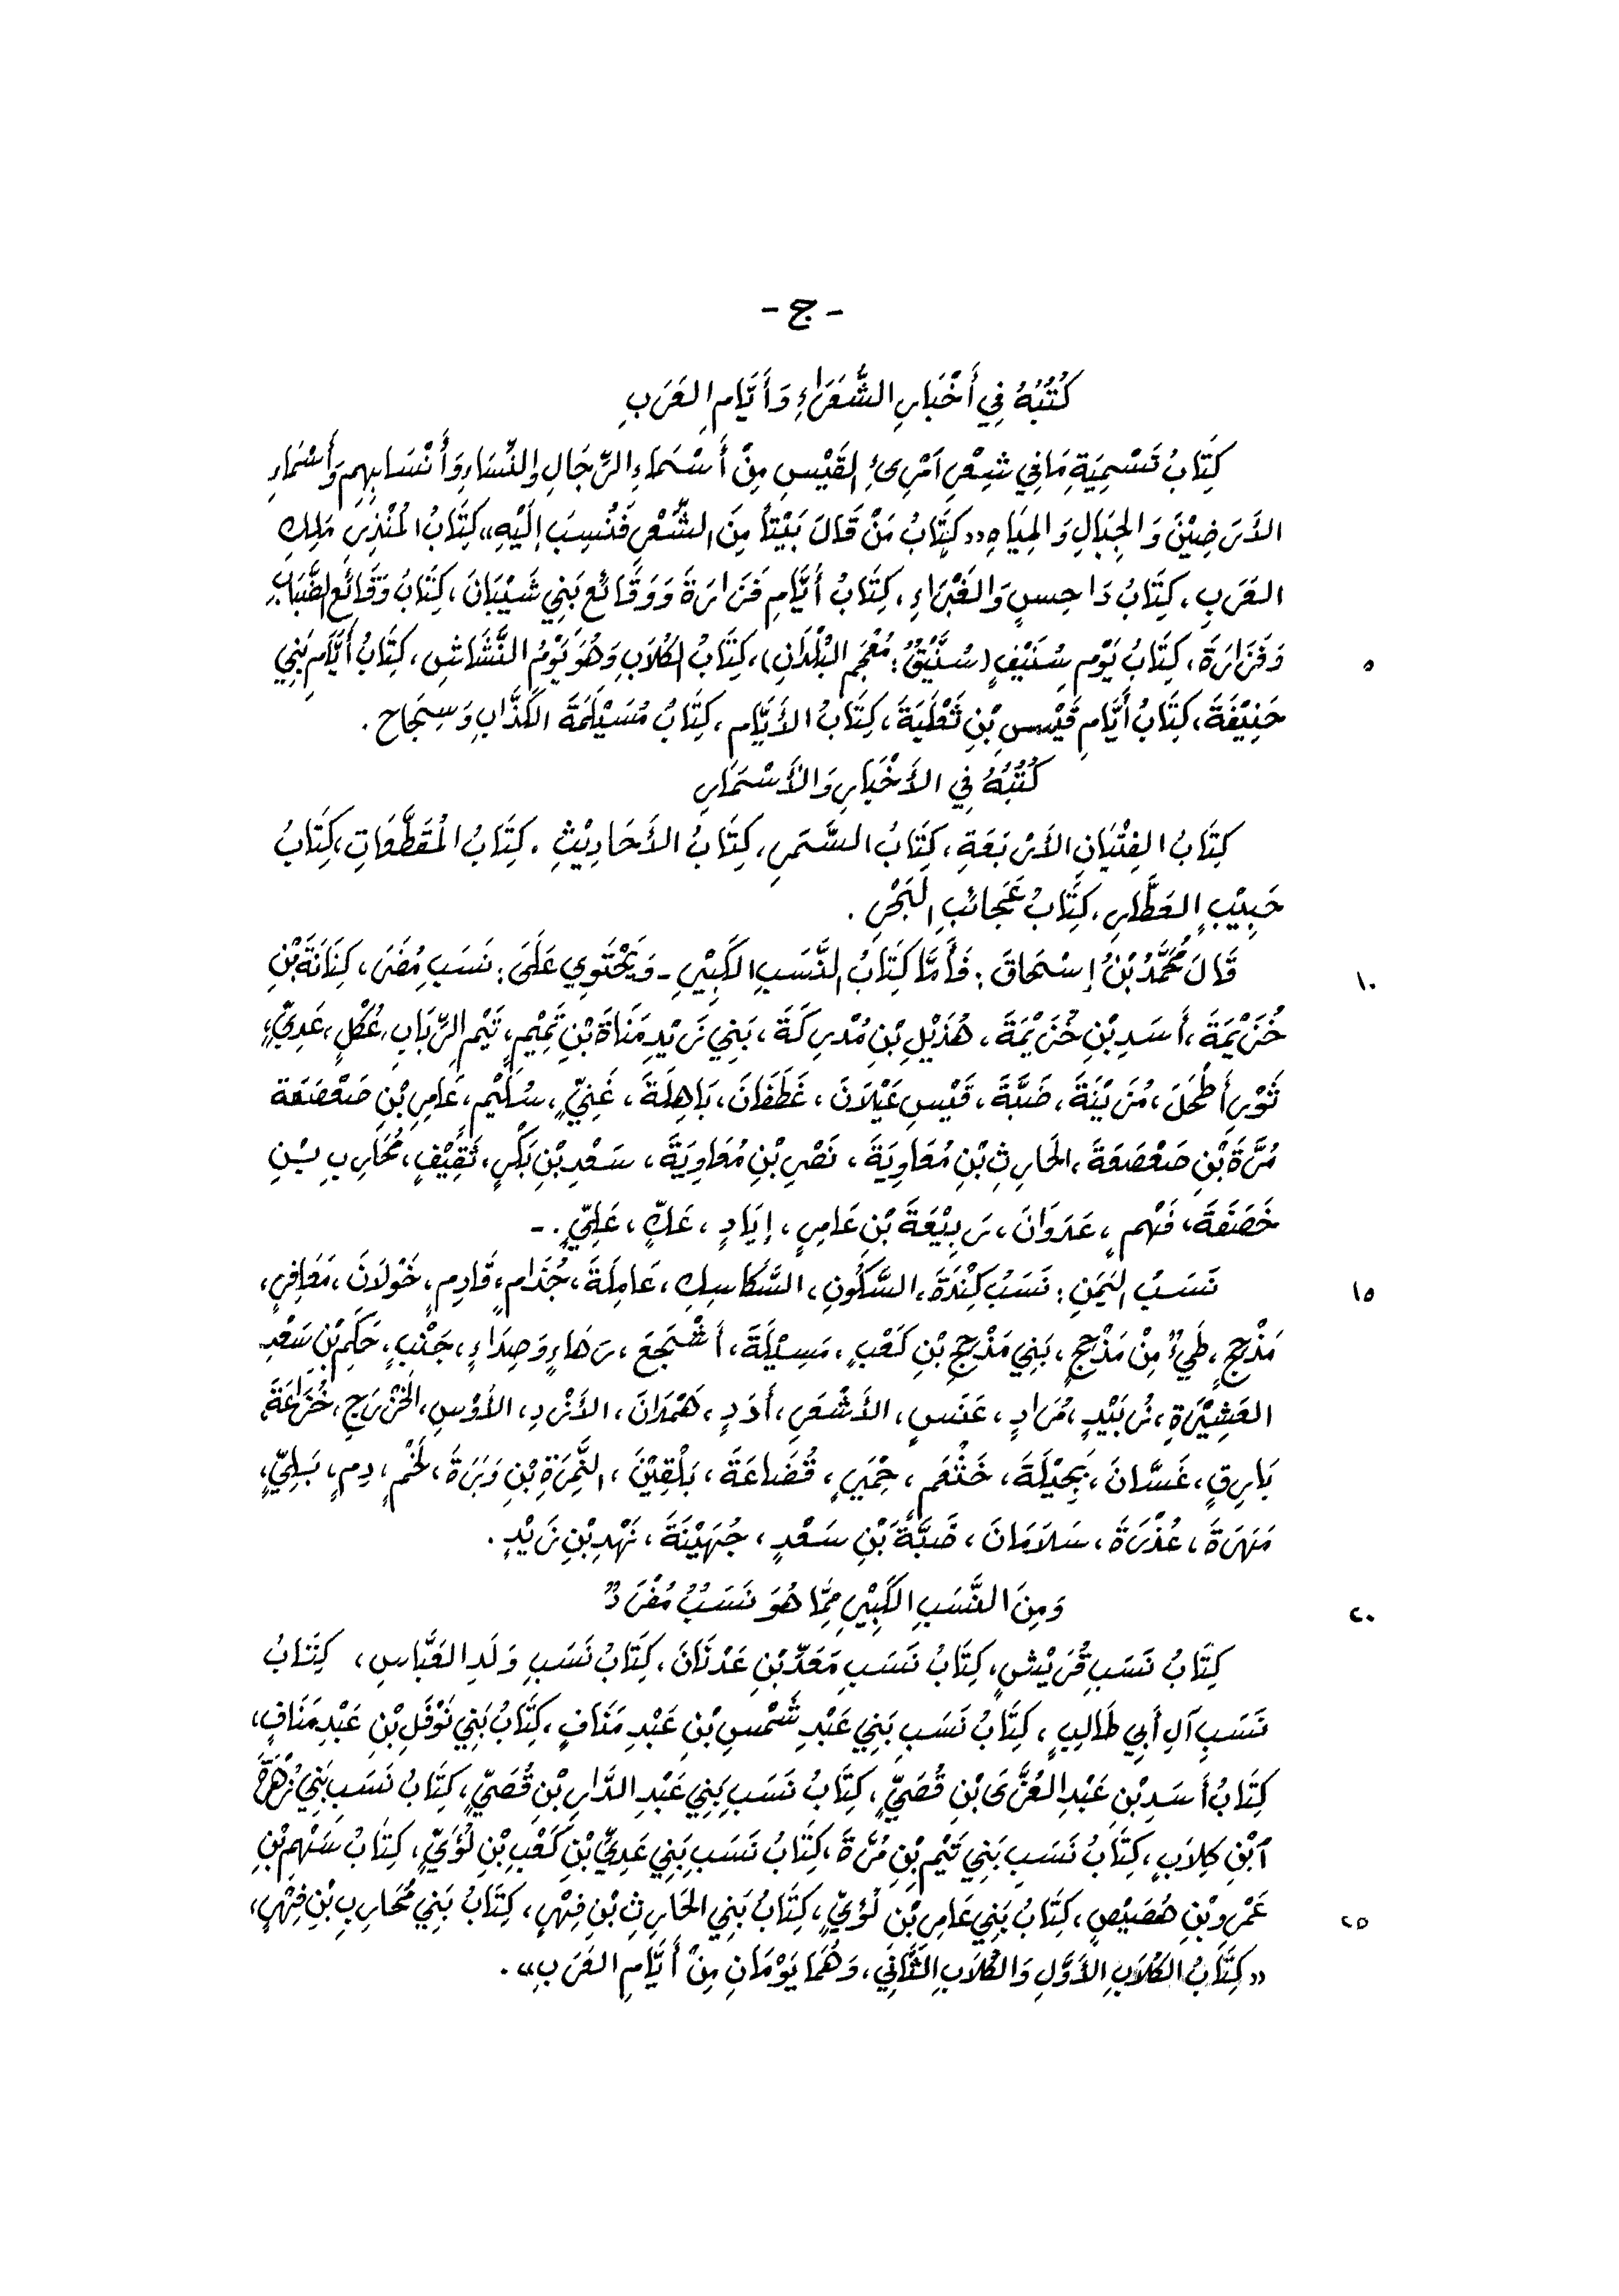 - ج -
كُتُبُهُ فِي أَخْبَارِ الشُّعَرَاءِ وَأَيَّامِ العَرَبِ
كِتَابُ تَسْمِيَةِ مَا فِي شِعْرِ آمْرِئِ القَيْسِ مِنْ أَسْمَاءِ الرِّجَالِ والنِّسَاءِ وَأَنْسَابِهِم وَأَسْمَاءِ
الأَرَضِيْنَ وَالجِبَالِ وَالمِيَاهِ «كِتَابُ مَنْ قَالَ بَيْتاً مِنَ الشِّعْرِ فَنُسِبَ إلَيْهِ» كِتَابُ المُنْذِرِ مَلِكِ
العَرَبِ، كِتَابُ دَاحِسٍ وَالغَبْرَاءِ، كِتَابُ أَيَّامِ فَزَارَةَ وَوَقَائِعِ بَنِي شَيْبَانَ، كِتَابُ وَقَائِعِ الضَّبَابِ
٥ وَفَزَارَةَ، كِتَابُ يَوْمِ سُنَيْفٍ (سُنَّيْقٌ: مُعْجَمِ البُلْدَانِ)، كِتَابُ الكُلاَبِ وَهُوَ يَوْمُ النَّشَاشِ، كِتَابُ أَيَّامِ بَنِي
حَنِيْفَةَ، كِتَابُ أَيَّامِ قَيْسِ بْنِ ثَعْلَبَةَ، كِتَابُ الأَيَّامِ، كِتَابُ مُسَيْلَمَةَ الكَذَّابِ وَسِجَاحِ.
كُتُبُهُ فِي الأَخْبَارِ وَالأَسْمَارِ
كِتَابُ الفِتْيَانِ الأَرْبَعَةِ، كِتَابُ السَّمَرِ، كِتَابُ الأَحَادِيْثِ، كِتَابُ المُقَطَّعَاتِ، كِتَابُ
حَبِيْبٍ العَطَّارِ، كِتَابُ عَجَائِبِ البَحْرِ.
١٠ قَالَ مُحَمَّدُ بْنُ إسْحَاقَ: فَأَمَّا كِتَابُ النَّسَبِ الكَبِيْرِ - وَيَحْتَوِي عَلَى: نَسَبِ مُضَرَ، كِنَانَةَ بْنِ
خُزَيْمَةَ، أَسَدِ بْنِ خُزَيْمَةَ، هُذَيْلِ بْنِ مُدْرِكَةَ، بَنِي زَيْدِ مَنَاةَ بْنِ تَمِيْمٍ، تَيْمِ الرِّبَابِ، عُكْلٍ، عَدِيٍّ،
ثَوْرِ أَطْحَلَ، مُزَيْنَةَ، ضَبَّةَ، قَيْسِ عَيْلاَنَ، غَطَفَانَ، بَاهِلَةَ، غَنِيٍّ، سُلَيْمٍ، عَامِرِ بْنِ صَعْصَعَة
مُرَّةَ بْنِ صَعْصَعَةَ، الحَارِثِ بْنِ مُعَاوِيَةَ، نَصْرِ بْنِ مُعَاوِيَةَ، سَعْدِ بْنِ بَكْرٍ، ثَقِيْفٍ، مُحَارِبِ بْنِ
خَصَفَةَ، فَهْمٍ، عَدَوَانَ، رَبِيْعَةَ بْنِ عَامِرٍ، إيَادٍ، عَكٍّ، عَلِيٍّ. -
١٥ نَسَبُ اليَمَنِ: نَسَبُ كِنْدَةَ، السَّكُونِ، السَّكَاسِكِ، عَامِلَةَ، جُذَامٍ، قَادِمٍ، خَوْلاَنَ، مَعَافِرٍ،
مَذْحِجٍ، طَيِّءٌ مِنْ مَذْحِجٍ، بَنِي مَذْحِجِ بْنِ كَعْبٍ، مَسِيْلَةَ، أَشْجَعَ، رَهَاءٍ وَصِدَاءٍ، جَنْبٍ، حَكَمِ بْنِ سَعْدِ
العَشِيْرَةِ، زُبَيْدٍ، مُرَادٍ، عَنَسٍ، الأَشْعَرِ، أَدَدٍ، هَمْدَانَ، الأَزْدِ، الأَوْسِ، الخَزْرَجِ، خُزَاعَةَ،
بَارِقٍ، غَسَّانَ، بَجِيْلَةَ، خَثْعَمٍ، حِمْيَرٍ، قُضَاعَةَ، بَلْقِيْنَ، النَّمِرَةِ بْنِ وَبَرَةَ، لَخْمٍ، دِمٍ، بَلِيٍّ،
مَهَرَةَ، عُذْرَةَ، سَلاَمَانَ، ضَبَّةَ بْنِ سَعْدٍ، جُهَيْنَةَ، نَهْدِ بْنِ زَيْدٍ.
٢٠ وَمِنَ النَّسَبِ الكَبِيْرِ مِمَّا هُوَ نَسَبٌ مُفْرَدٌ
كِتَابُ نَسَبِ قُرَيْشٍ، كِتَابُ نَسَبِ مَعَدِّ بْنِ عَدْنَانَ، كِتَابُ نَسَبِ وَلَدِ العَبَّاسِ، كِتَابُ
نَسَبِ آلِ أَبِي طَالِبٍ، كِتَابُ نَسَبِ بَنِي عَبْدِ شَمْسِ بْنِ عَبْدِ مَنَافٍ، كِتَابُ بَنِي نَوْفَلِ بْنِ عَبْدِ مَنَافٍ،
كِتَابُ أَسَدِ بْنِ عَبْدِ العُزَّى بْنِ قُصَيٍّ، كِتَابُ نَسَبِ بَنِي عَبْدِ الدَّارِ بْنِ قُصَيٍّ، كِتَابُ نَسَبِ بَنِي زُهْرَةَ
آبْنِ كِلاَبٍ، كِتَابُ نَسَبِ بَنِي تَيْمِ بْنِ مُرَّةَ، كِتَابُ نَسَبِ بَنِي عَدِيِّ بْنِ كَعْبِ بْنِ لُؤَيٍّ، كِتَابُ سَهْمِ بْنِ
٢٥ عَمْرِو بْنِ هُصَيْصٍ، كِتَابُ بَنِي عَامِرِ بْنِ لُؤَيٍّ، كِتَابُ بَنِي الحَارِثِ بْنِ فِهْرٍ، كِتَابُ بَنِي مُحَارِبِ بْنِ فِهْرٍ،
«كِتَابُ الكُلاَبِ الأَوَّلِ وَالكُلاَبِ الثَّانِي، وَهُمَا يَوْمَانِ مِنْ أَيَّامِ العَرَبِ».